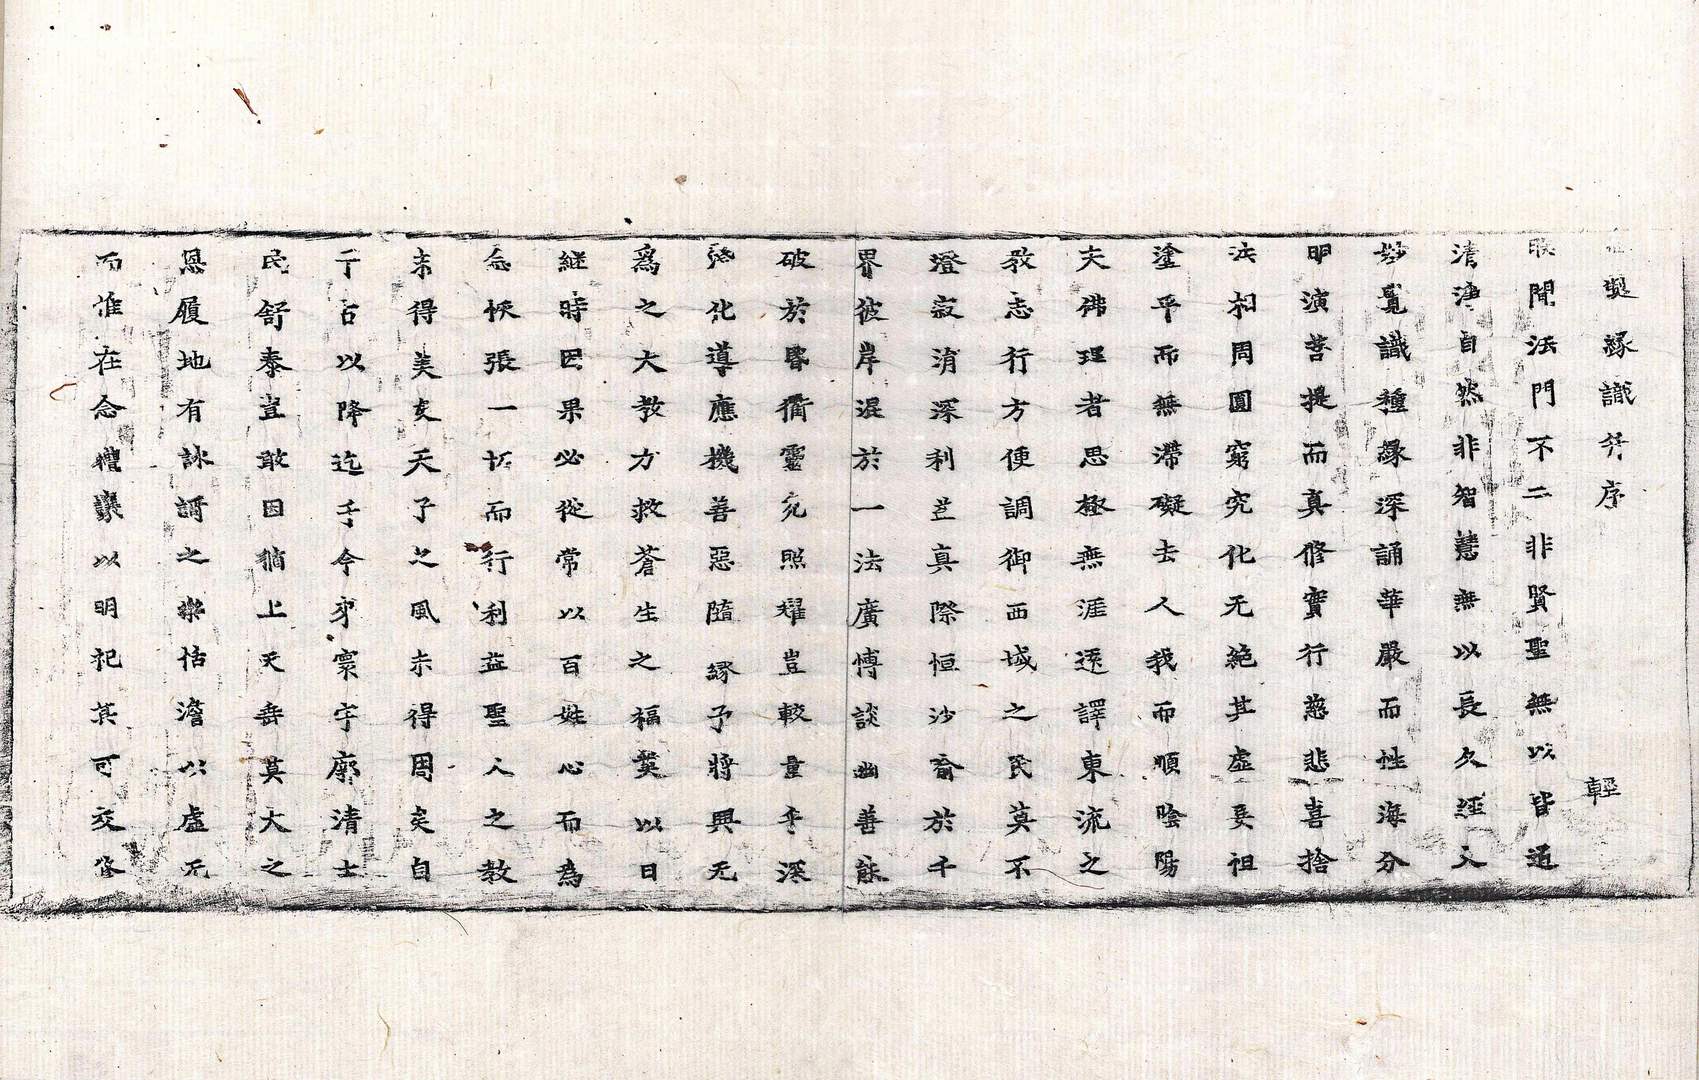 製緣識并序 輕
朕聞法門不二非賢聖無以皆通
清淨自然非智慧無以長久經文
妙覺識種緣深誦華嚴而性海分
明演菩提而真修實行慈悲喜捨
法相周圓窮究化无絕其虛妄祖
塗平而無滯礙去人我而順陰陽
夫佛理者思極無涯逐譯東流之
教志行方便調御西域之民莫不
澄寂消深利豈真際恒沙喬於千
界彼岸混於一法廣博談幽善
破於昏衢靈光照耀豈較量乎深
化導應機善惡隨緣予將興无
為之大教方救蒼生之福冀以日
繼時因果必從常以百姓心而為
念恢張一切而行利益聖人之教
未得美矣天子之風亦得周矣自
于古以降迄乎今寰宇廓清士
民舒泰豈敢因循上天垂莫大之
恩履地有詠謌之樂恬澹以虛无
而惟在念禮讓以明祀其可交修